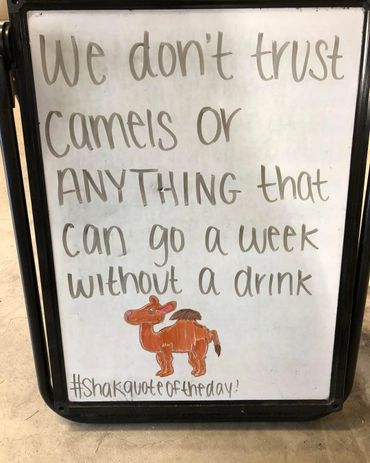 We don't trust
camels or
ANYTHING that
can go a week
without a drink
#Shakquoteoftheday!